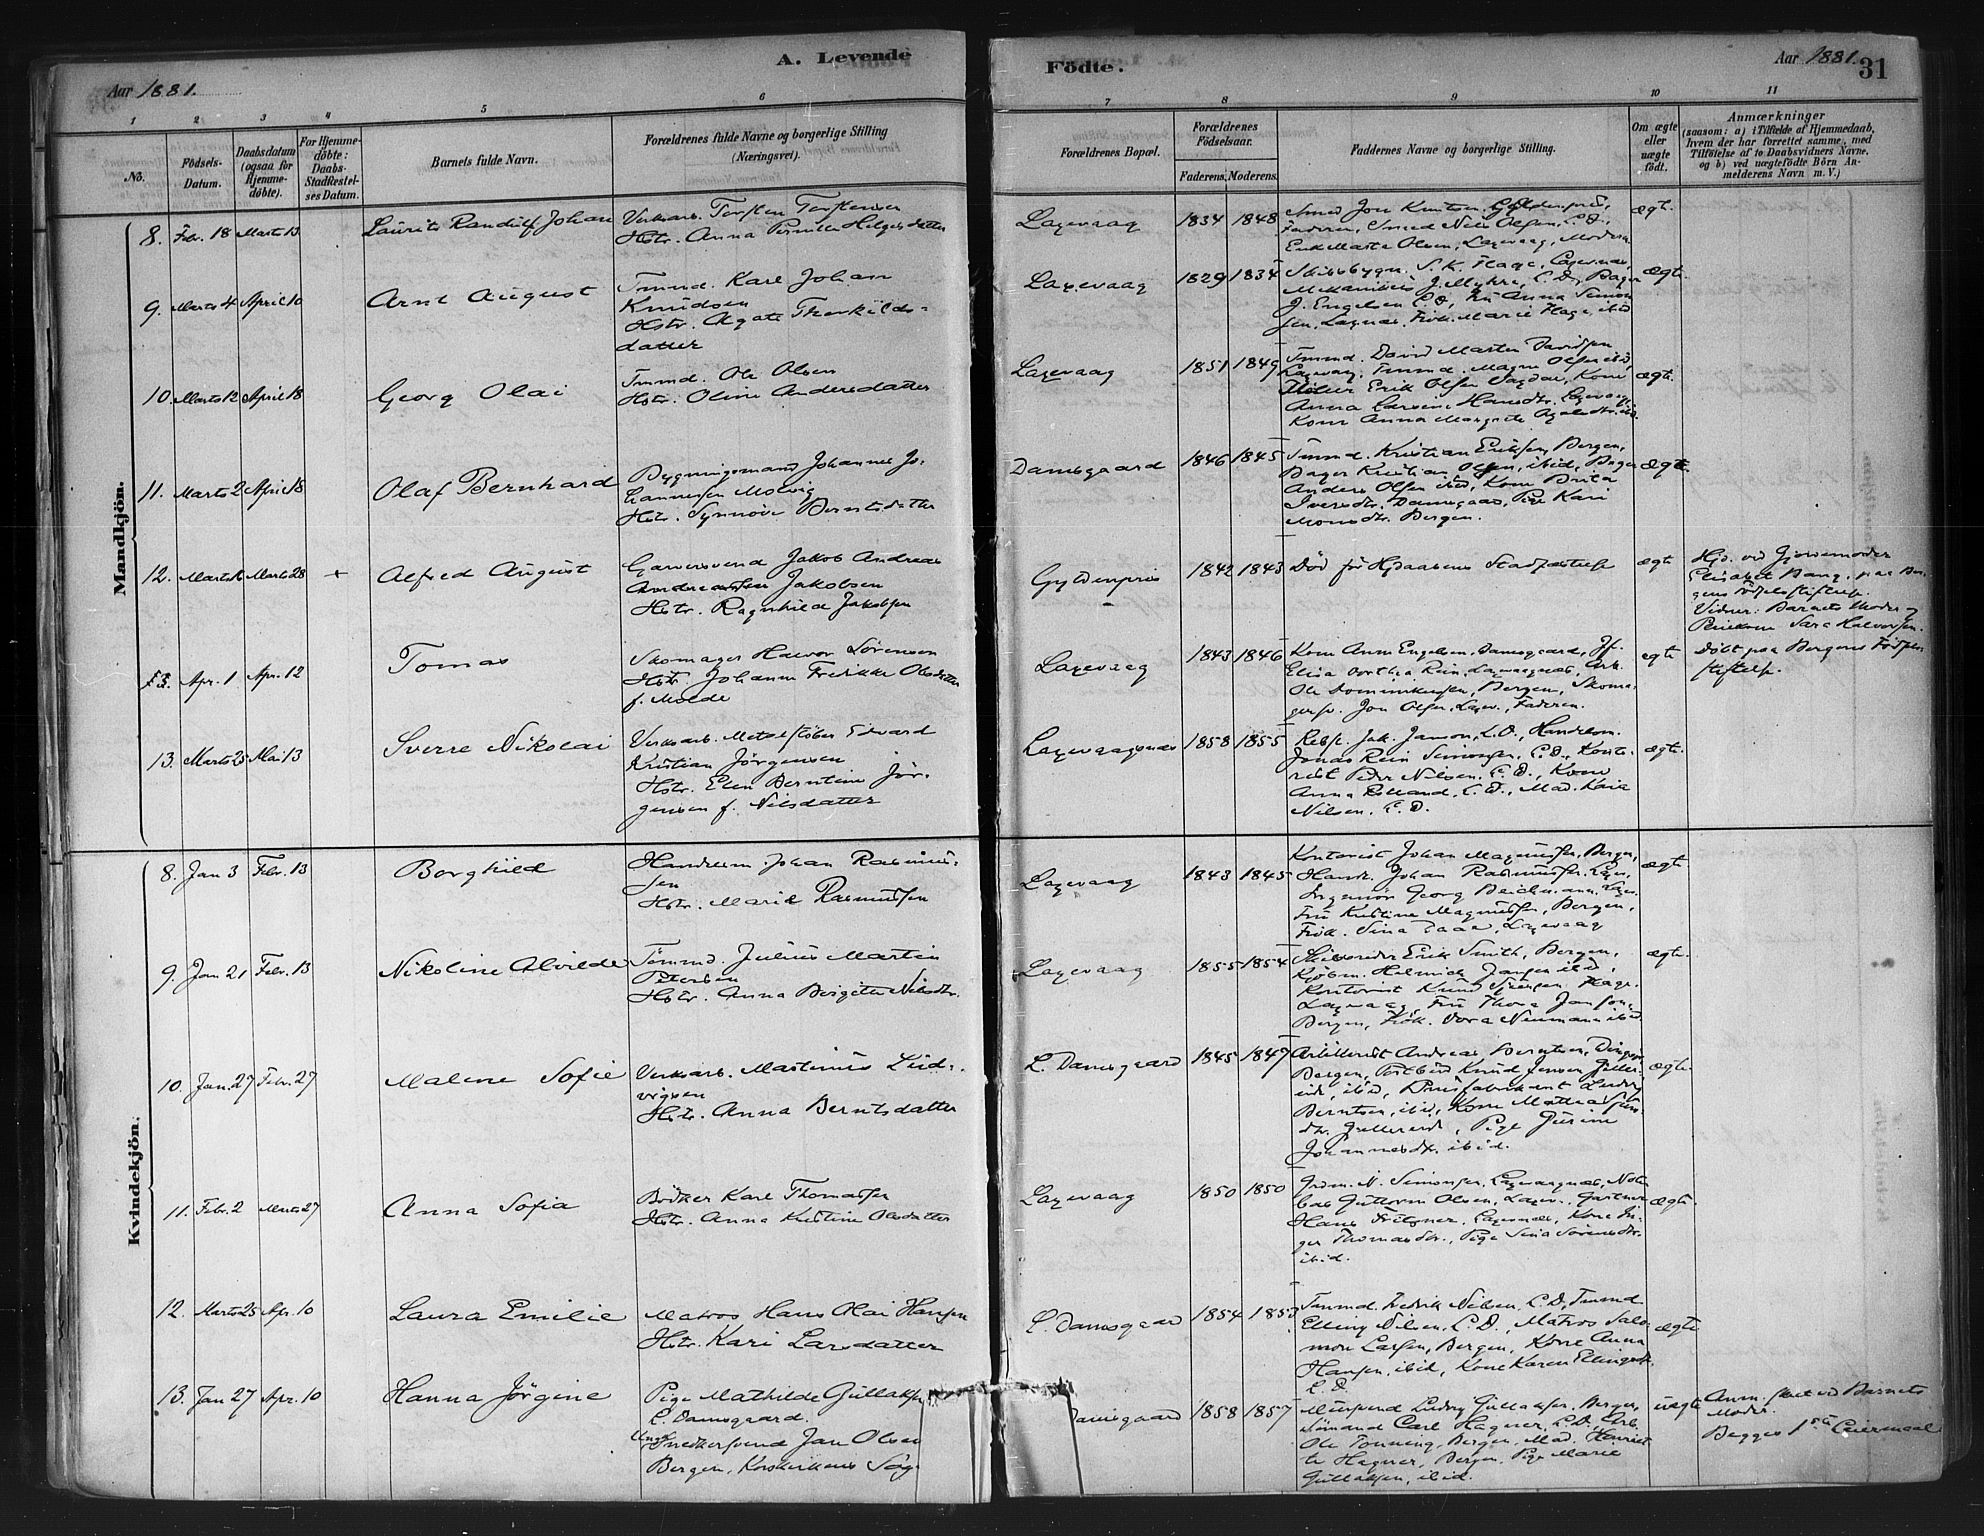 A. Levende
Födte.
Aar 1881.
Aar 1881.
31
1 2 3 4 5 6 7 8 9 10 11
No.
Födsels-Datum.
Daabsdatum (ogsaa for Hjemmedöbte).
For Hjemmedöbte: Daabs-Stadfæstelses Datum.
Barnets fulde Navn.
Forældrenes fulde Navne og borgerlige Stilling
(Næringsvei).
Forældrenes Bopæl.
Forældrenes Födselsaar.
Faderens. Moderens.
Faddernes Navne og borgerlige Stilling.
Om ægte eller uægte födt.
Anmærkninger
(saasom: a) i Tilfælde af Hjemmedaab,
hvem der har forrettet samme, med
Tilföielse af to Daabsvidners Navne,
og b) ved uægtefödte Börn Anmelderens Navn m. V.)
Mandkjön.
8. Febr. 18 Marts 13 Laurits Randulf Johan
Verksarb. Torsten Torstensen
Hstr. Anna Pernille Helgesdatter
Laxevaag 1834 1848
Smed Jon Knutsen, Gyldenpris,
Faderen, Smed Niels Olsen, L. D.,
Enke Marta Olsen, Laxevaag, Moderen
ægte.
9. Marts 4 April 10 Arnt August
Tmmd. Karl Johan
Knudsen
Hstr. Agate Thorkilds-
datter
Laxevaag 1829 1834
Skibsbygm. S. K. Hage, Laxevaag,
Mekanikus J. Myhre, L. D., Bager
J. Engelsen L. D., Fru Anna Simon
sen, Laxnæs, Frøk. Marie Hage, ibid
ægte.
10. Marts 12 April 18 Georg Olai
Tmmd. Ole Olsen
Hstr. Oline Andersdatter
Laxevaag 1851 1849
Tmmd. David Marten Davidsen
Laxevaag, Tmmd. Magne Olsen ibid,
Møller Erik Olsen Sagdal, Kone
Anna Larsine Hansdtr. Laxevaag,
Kone Anna Margrete
ægte.
11. Marts 2 April 18 Olaf Bernhard
Bygningsmand Johannes Jo-
hannesen Molvig
Hstr. Synnøve Berntsdatter
Damsgaard 1846 1845
Tmmd. Kristian Eriksen, Bergen,
Bager Kristian Olsen, ibid, Bager
Anders Olsen ibid, Kone Brita
Iversdtr. Damsgaard, Pige Kari
Monsdtr. Bergen.
ægte.
12. Marts 16 Marts 28 + Alfred August
Garversvend Jakob Andreas
Andreassen Jakobsen
Hstr. Ragnhild Jakobsen
Gyldenpris 1842 1843
Død før Hjdaabens Stadfæstelse
ægte
Hjd. ved Gjordemoder
Elisabet Bang, paa Ber-
gens Fødselsstiftelse.
Vidner: Barnets Moder og
Pleiekone Sara Halvorsen.
13. Apr. 1 Apr. 12 Tomas
Skomager Halvor Sörensen
Hstr. Johanne Fredrikke Olsdatter
f. Molde
Laxevaag 1843 1846
Kone Anne Engelsen, Damsgaard, Jfr.
Elisa Dorthea Rein, Laxevaagnæs, Arb.
Ole Dominikusen, Bergen, Skoma-
gersv. Jon Olsen, Laxev., Faderen.
ægte
Døbt paa Bergens Fødsels
stiftelse.
13. Marts 25 Mai 13 Sverre Nikolai
Verksarb. Metalstöber Edvard
Kristian Jörgensen
Hstr. Elen Berntine Jör-
gensen f. Nilsdatter
Laxevaagsnæs 1858 1855
Rebsl. Jak. Janson, L. D., Handelsm.
Jonas Rein Simonsen, L. D., Konto-
rist Peder Nilsen, L. D., Kone
Anna Rolland, L. D., Mad. Karie
Nilsen, L. D.
ægte.
Kvindekjön.
8. Jan 3 Febr. 13 Borghild
Handelsm. Johan Rasmus-
sen
Hstr. Marie Rasmussen
Laxevaag 1843 1845
Kontorist Johan Magnussen, Bergen,
Handl. Johan Rasmussen, Laxev.
Ingeniør Georg Beichmann, Laxev.
Fru Kristine Magnussen, Bergen,
Frøk. Sina Laxevaag
ægte
9. Jan. 21 Febr. 13 Nikoline Alvilde
Tömmd. Julius Martin
Petersen
Hstr. Anna Birgitte Nilsdtr.
Laxevaag 1855 1854
Skibsreder Erik Smith, Bergen,
Kjöbm. Helmich Jansen ibid,
Kontorist Knud Hage,
Laxevaag, Fru Thora Janson,
Bergen, Frøk. Dora Neumann ibid
ægte.
10. Jan. 27 Febr. 27 Malene Sofie
Verksarb. Martinus Lud-
vigsen
Hstr. Anna Berntsdatter
L. Damsgaard 1845 1847
Artillerist Andreas Berntsen,
Bergen, Knud Jensen
ibid,
Berntsen, ibid, Kone Mattea
dtr. Pige Gurine
Johannesdtr. ibid.
ægte.
11. Febr. 2 Marts 27 Anna Sofia
Bödker Karl Thomassen
Hstr. Anna Kristine Olsdatter
Laxevaag 1850 1850
N. Simonsen, Laxevaagnæs,
Guttorm Olsen, Laxev., Gartner
Hans Fritzner, Laxevnæs, Kone In-
ger Thomasdtr., Pige Sina Sörensdtr.
ibid.
ægte.
12. Marts 25 Apr. 10 Laura Emilie
Matros Hans Olai Hansen
Hstr. Kari Larsdatter
L. Damsgaard 1854 1853
Tmmd. Fredrik Nilsen, L. D., Tmmd
Elling Nilsen, L. D., Matros Salo-
mon Larsen, Bergen, Kone Anna
Hansen, ibid, Kone Karen Ellingsdtr.
L. D.
ægte
13. Jan 27 Apr. 10 Hanna Jörgine
Pige Mathilde Gullaksen
L. Damsgaard.
Ungk. Snedkersvend Jan Olsen
Bergen, Korskirkens Sog
Damsgaard 1858 1857
Mursvend Ludvig Gullaksen, Bergen,
Sömand Carl Hagner, L. D., Arb.
Ole Tonning, Bergen, Mad. Henriet-
te Hagner, Bergen, Pige Marie
Gullaksen, ibid.
uægte
Anm. skeet ved Barnets
Moder.
Begges 1ste Leiermaal